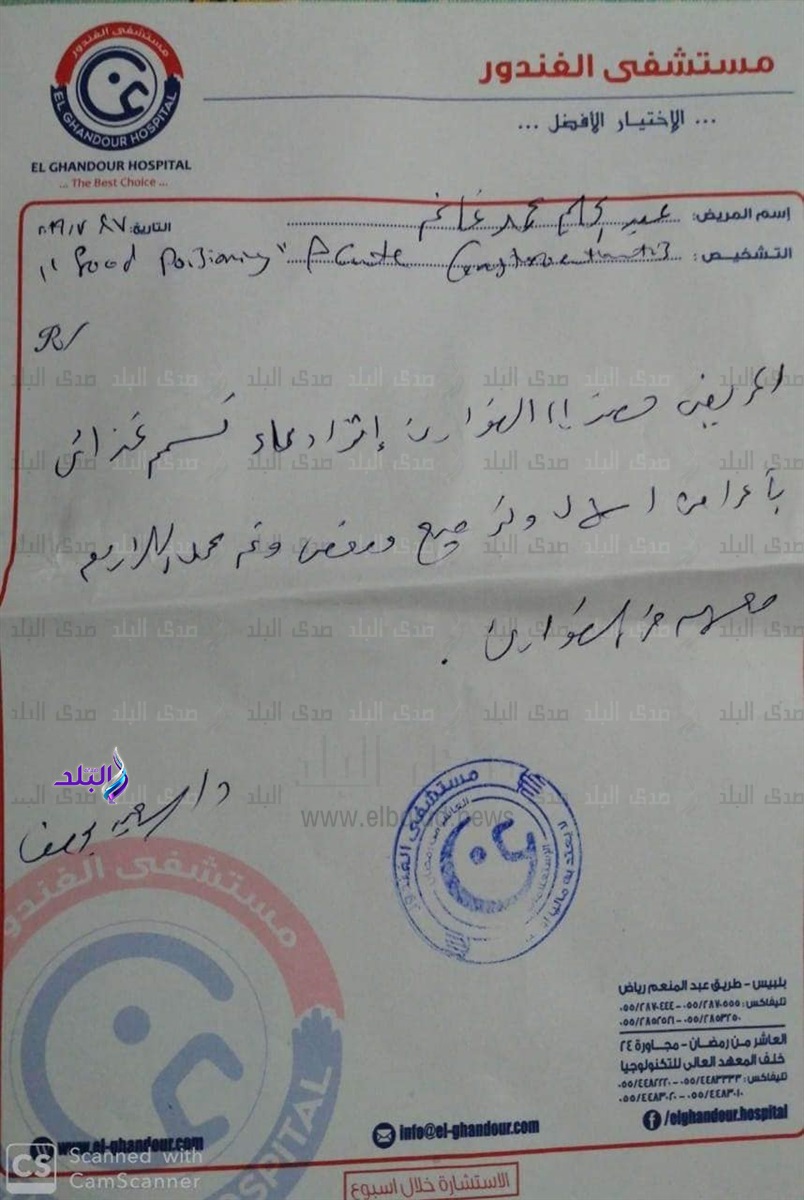 مستشفى الغندور
EL GHANDOUR HOSPITAL
EL GHANDOUR HOSPITAL
... The Best Choice ...
مستشفى الغندور
... الإختيار الأفضل ...
إسم المريض: عبد الحليم محمد غانم
التاريخ:
التشخيص: Acute "Food Poisioning"
R/
المريض حضر الطوارئ
تسمم غذائى
بأعراض اسهال وترجيع ومغص وتم عمل اللازم
معه من الطوارئ.
د/ السعيد يوسف
البلد
صدى البلد
www.elbalad.news
مستشفى الغندور
العاشر من رمضان
مستشفى الغندور
بلبيس - طريق عبد المنعم رياض
تليفاكس: ٠٥٥/٢٨٧٠٥٥٥ - ٠٥٥/٢٨٧٠٤٤٤
٠٥٥/٢٨٥٣٢٥٠ - ٠٥٥/٢٨٥٢٥٢١
العاشر من رمضان - مجاورة ٢٤
خلف المعهد العالى للتكنولوجيا
تليفاكس: ٠٥٥/٤٤٨٣٣٣٣ - ٠٥٥/٤٤٨٢٢٢٠
٠٥٥/٤٤٨٣٠١٠ - ٠٥٥/٤٤٨٣٠٢٠
/elghandour.hospital
info@el-ghandour.com
www.el-ghandour.com
CS Scanned with
CamScanner
الاستشارة خلال اسبوع